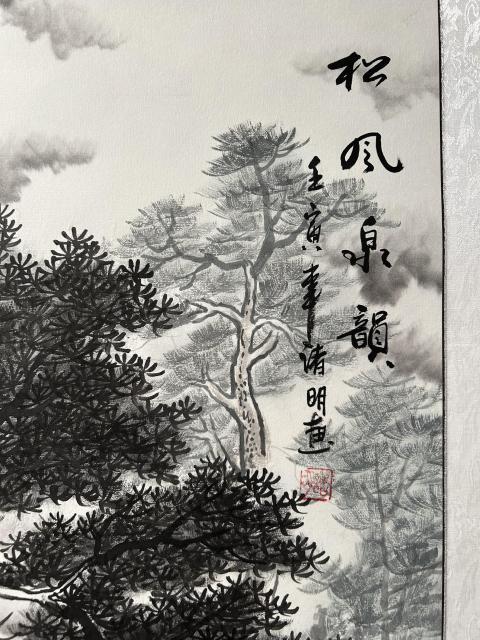 松风泉韻
壬寅年清明画